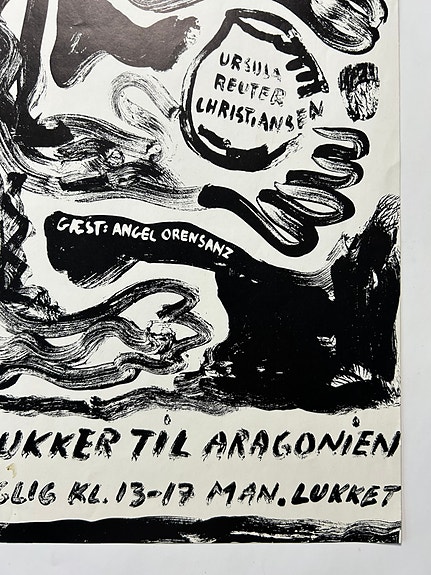 URSULA
REUTER
CHRISTIANSEN
GÆST: ANGEL ORENSANZ
UKKER TIL ARAGONIEN
GLIG KL. 13-17 MAN. LUKKET